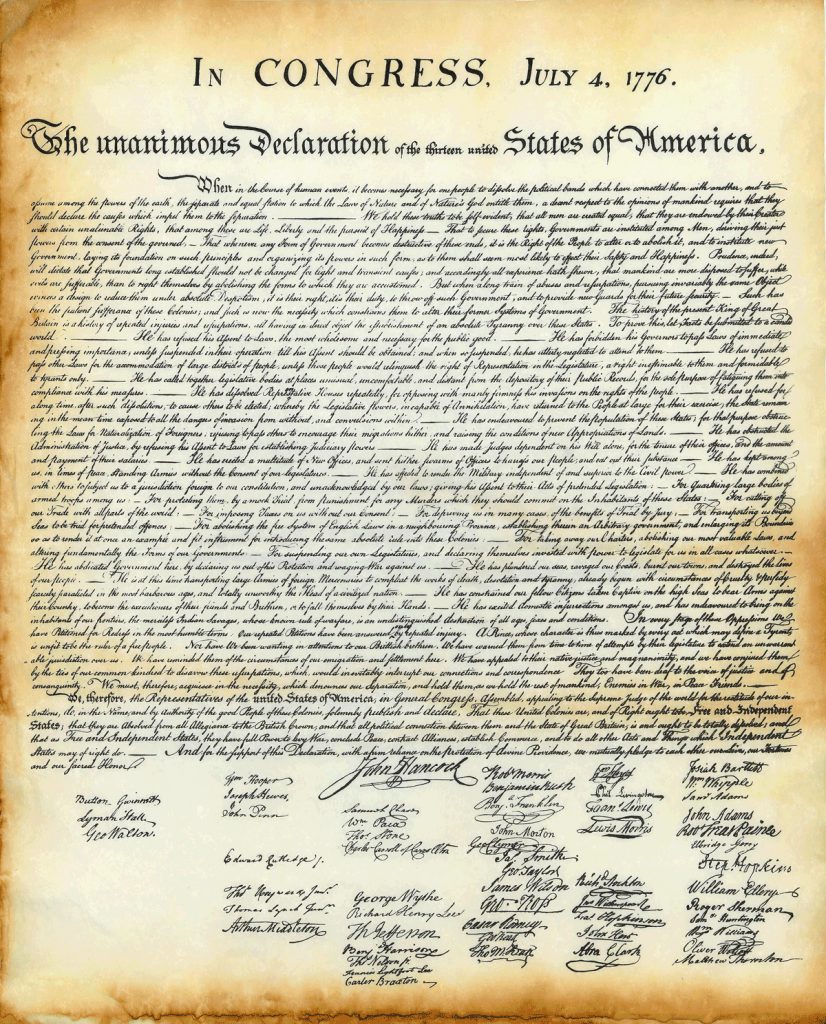 IN CONGRESS, JULY 4, 1776.
The unanimous Declaration of the thirteen united States of America,
When in the Course of human events, it becomes necessary for one people to dissolve the political bands which have connected them with another, and to
assume among the powers of the earth, the separate and equal station to which the Laws of Nature and of Nature's God entitle them, a decent respect to the opinions of mankind requires that they
should declare the causes which impel them to the separation. — We hold these truths to be self-evident, that all men are created equal, that they are endowed by their Creator
with certain unalienable Rights, that among these are Life, Liberty and the pursuit of Happiness — That to secure these rights, Governments are instituted among Men, deriving their just
powers from the consent of the governed, — That whenever any Form of Government becomes destructive of these ends, it is the Right of the People to alter or to abolish it, and to institute new
Government, laying its foundation on such principles and organizing its powers in such form, as to them shall seem most likely to effect their Safety and Happiness. Prudence, indeed,
will dictate that Governments long established should not be changed for light and transient causes; and accordingly all experience hath shewn, that mankind are more disposed to suffer, while
evils are sufferable, than to right themselves by abolishing the forms to which they are accustomed. But when a long train of abuses and usurpations, pursuing invariably the same Object
evinces a design to reduce them under absolute Despotism, it is their right, it is their duty, to throw off such Government, and to provide new Guards for their future security. — Such has
been the patient sufferance of these Colonies; and such is now the necessity which constrains them to alter their former Systems of Government. The history of the present King of Great
Britain is a history of repeated injuries and usurpations, all having in direct object the establishment of an absolute Tyranny over these States. To prove this, let Facts be submitted to a candid
world. — He has refused his Assent to Laws, the most wholesome and necessary for the public good. — He has forbidden his Governors to pass Laws of immediate
and pressing importance, unless suspended in their operation till his Assent should be obtained; and when so suspended, he has utterly neglected to attend to them. — He has refused to
pass other Laws for the accommodation of large districts of people, unless those people would relinquish the right of Representation in the Legislature, a right inestimable to them and formidable
to tyrants only. — He has called together legislative bodies at places unusual, uncomfortable, and distant from the depository of their public Records, for the sole purpose of fatiguing them into
compliance with his measures. — He has dissolved Representative Houses repeatedly, for opposing with manly firmness his invasions on the rights of the people. — He has refused for
a long time, after such dissolutions, to cause others to be elected; whereby the Legislative powers, incapable of Annihilation, have returned to the People at large for their exercise; the State remain
ing in the mean time exposed to all the dangers of invasion from without, and convulsions within. — He has endeavoured to prevent the population of these States; for that purpose obstruc
ting the Laws for Naturalization of Foreigners; refusing to pass others to encourage their migrations hither, and raising the conditions of new Appropriations of Lands. — He has obstructed the
Administration of Justice, by refusing his Assent to Laws for establishing Judiciary powers. — He has made Judges dependent on his Will alone, for the tenure of their offices, and the amount
and payment of their salaries. — He has erected a multitude of New Offices, and sent hither swarms of Officers to harrass our People, and eat out their substance. — He has kept among
us, in times of peace, Standing Armies without the Consent of our legislatures. — He has affected to render the Military independent of and superior to the Civil power. — He has combined
with others to subject us to a jurisdiction foreign to our constitution, and unacknowledged by our laws; giving his Assent to their Acts of pretended Legislation: — For Quartering large bodies of
armed troops among us: — For protecting them, by a mock Trial, from punishment for any Murders which they should commit on the Inhabitants of these States: — For cutting off
our Trade with all parts of the world: — For imposing Taxes on us without our Consent: — For depriving us in many cases, of the benefits of Trial by Jury: — For transporting us beyond
Seas to be tried for pretended offences: — For abolishing the free System of English Laws in a neighbouring Province, establishing therein an Arbitrary government, and enlarging its Boundaries
so as to render it at once an example and fit instrument for introducing the same absolute rule into these Colonies: — For taking away our Charters, abolishing our most valuable Laws, and
altering fundamentally the Forms of our Governments: — For suspending our own Legislatures, and declaring themselves invested with power to legislate for us in all cases whatsoever. —
He has abdicated Government here, by declaring us out of his Protection and waging War against us. — He has plundered our seas, ravaged our Coasts, burnt our towns, and destroyed the lives
of our people. — He is at this time transporting large Armies of foreign Mercenaries to compleat the works of death, desolation and tyranny, already begun with circumstances of Cruelty & perfidy
scarcely paralleled in the most barbarous ages, and totally unworthy the Head of a civilized nation. — He has constrained our fellow Citizens taken Captive on the high Seas to bear Arms against
their Country, to become the executioners of their friends and Brethren, or to fall themselves by their Hands. — He has excited domestic insurrections amongst us, and has endeavoured to bring on the
inhabitants of our frontiers, the merciless Indian Savages, whose known rule of warfare, is an undistinguished destruction of all ages, sexes and conditions. In every stage of these Oppressions We
have Petitioned for Redress in the most humble terms: Our repeated Petitions have been answered only by repeated injury. A Prince, whose character is thus marked by every act which may define a Tyrant,
is unfit to be the ruler of a free people. Nor have We been wanting in attentions to our Brittish brethren. We have warned them from time to time of attempts by their legislature to extend an unwarrant
able jurisdiction over us. We have reminded them of the circumstances of our emigration and settlement here. We have appealed to their native justice and magnanimity, and we have conjured them
by the ties of our common kindred to disavow these usurpations, which, would inevitably interrupt our connections and correspondence. They too have been deaf to the voice of justice and of
consanguinity. We must, therefore, acquiesce in the necessity, which denounces our Separation, and hold them, as we hold the rest of mankind, Enemies in War, in Peace Friends.
We, therefore, the Representatives of the united States of America, in General Congress, Assembled, appealing to the Supreme Judge of the world for the rectitude of our in
tentions, do, in the Name, and by Authority of the good People of these Colonies, solemnly publish and declare, That these United Colonies are, and of Right ought to be Free and Independent
States; that they are Absolved from all Allegiance to the British Crown, and that all political connection between them and the State of Great Britain, is and ought to be totally dissolved; and
that as Free and Independent States, they have full Power to levy War, conclude Peace, contract Alliances, establish Commerce, and to do all other Acts and Things which Independent
States may of right do. — And for the support of this Declaration, with a firm reliance on the protection of divine Providence, we mutually pledge to each other our Lives, our Fortunes
and our sacred Honor.
Button Gwinnett
Lyman Hall
Geo Walton.
Wm Hooper
Joseph Hewes,
John Penn
Edward Rutledge /.
Thos Heyward Junr.
Thomas Lynch Junr.
Arthur Middleton
John Hancock
Samuel Chase
Wm Paca
Thos Stone
Charles Carroll of Carrollton
George Wythe
Richard Henry Lee
Th Jefferson
Benj Harrison
Thos Nelson jr
Francis Lightfoot Lee
Carter Braxton
Robt Morris
Benjamin Rush
Benj. Franklin
John Morton
Geo Clymer
Jas. Smith
Geo. Taylor
James Wilson
Geo. Ross
Caesar Rodney
Geo Read
Tho M:Kean
Phil. Livingston
Frans. Lewis
Lewis Morris
Richd. Stockton
Jno Witherspoon
Fras. Hopkinson
John Hart
Abra Clark
Josiah Bartlett
Wm. Whipple
Saml Adams
John Adams
Robt Treat Paine
Elbridge Gerry
Step. Hopkins
William Ellery
Roger Sherman
Saml Huntington
Wm Williams
Oliver Wolcott
Matthew Thornton